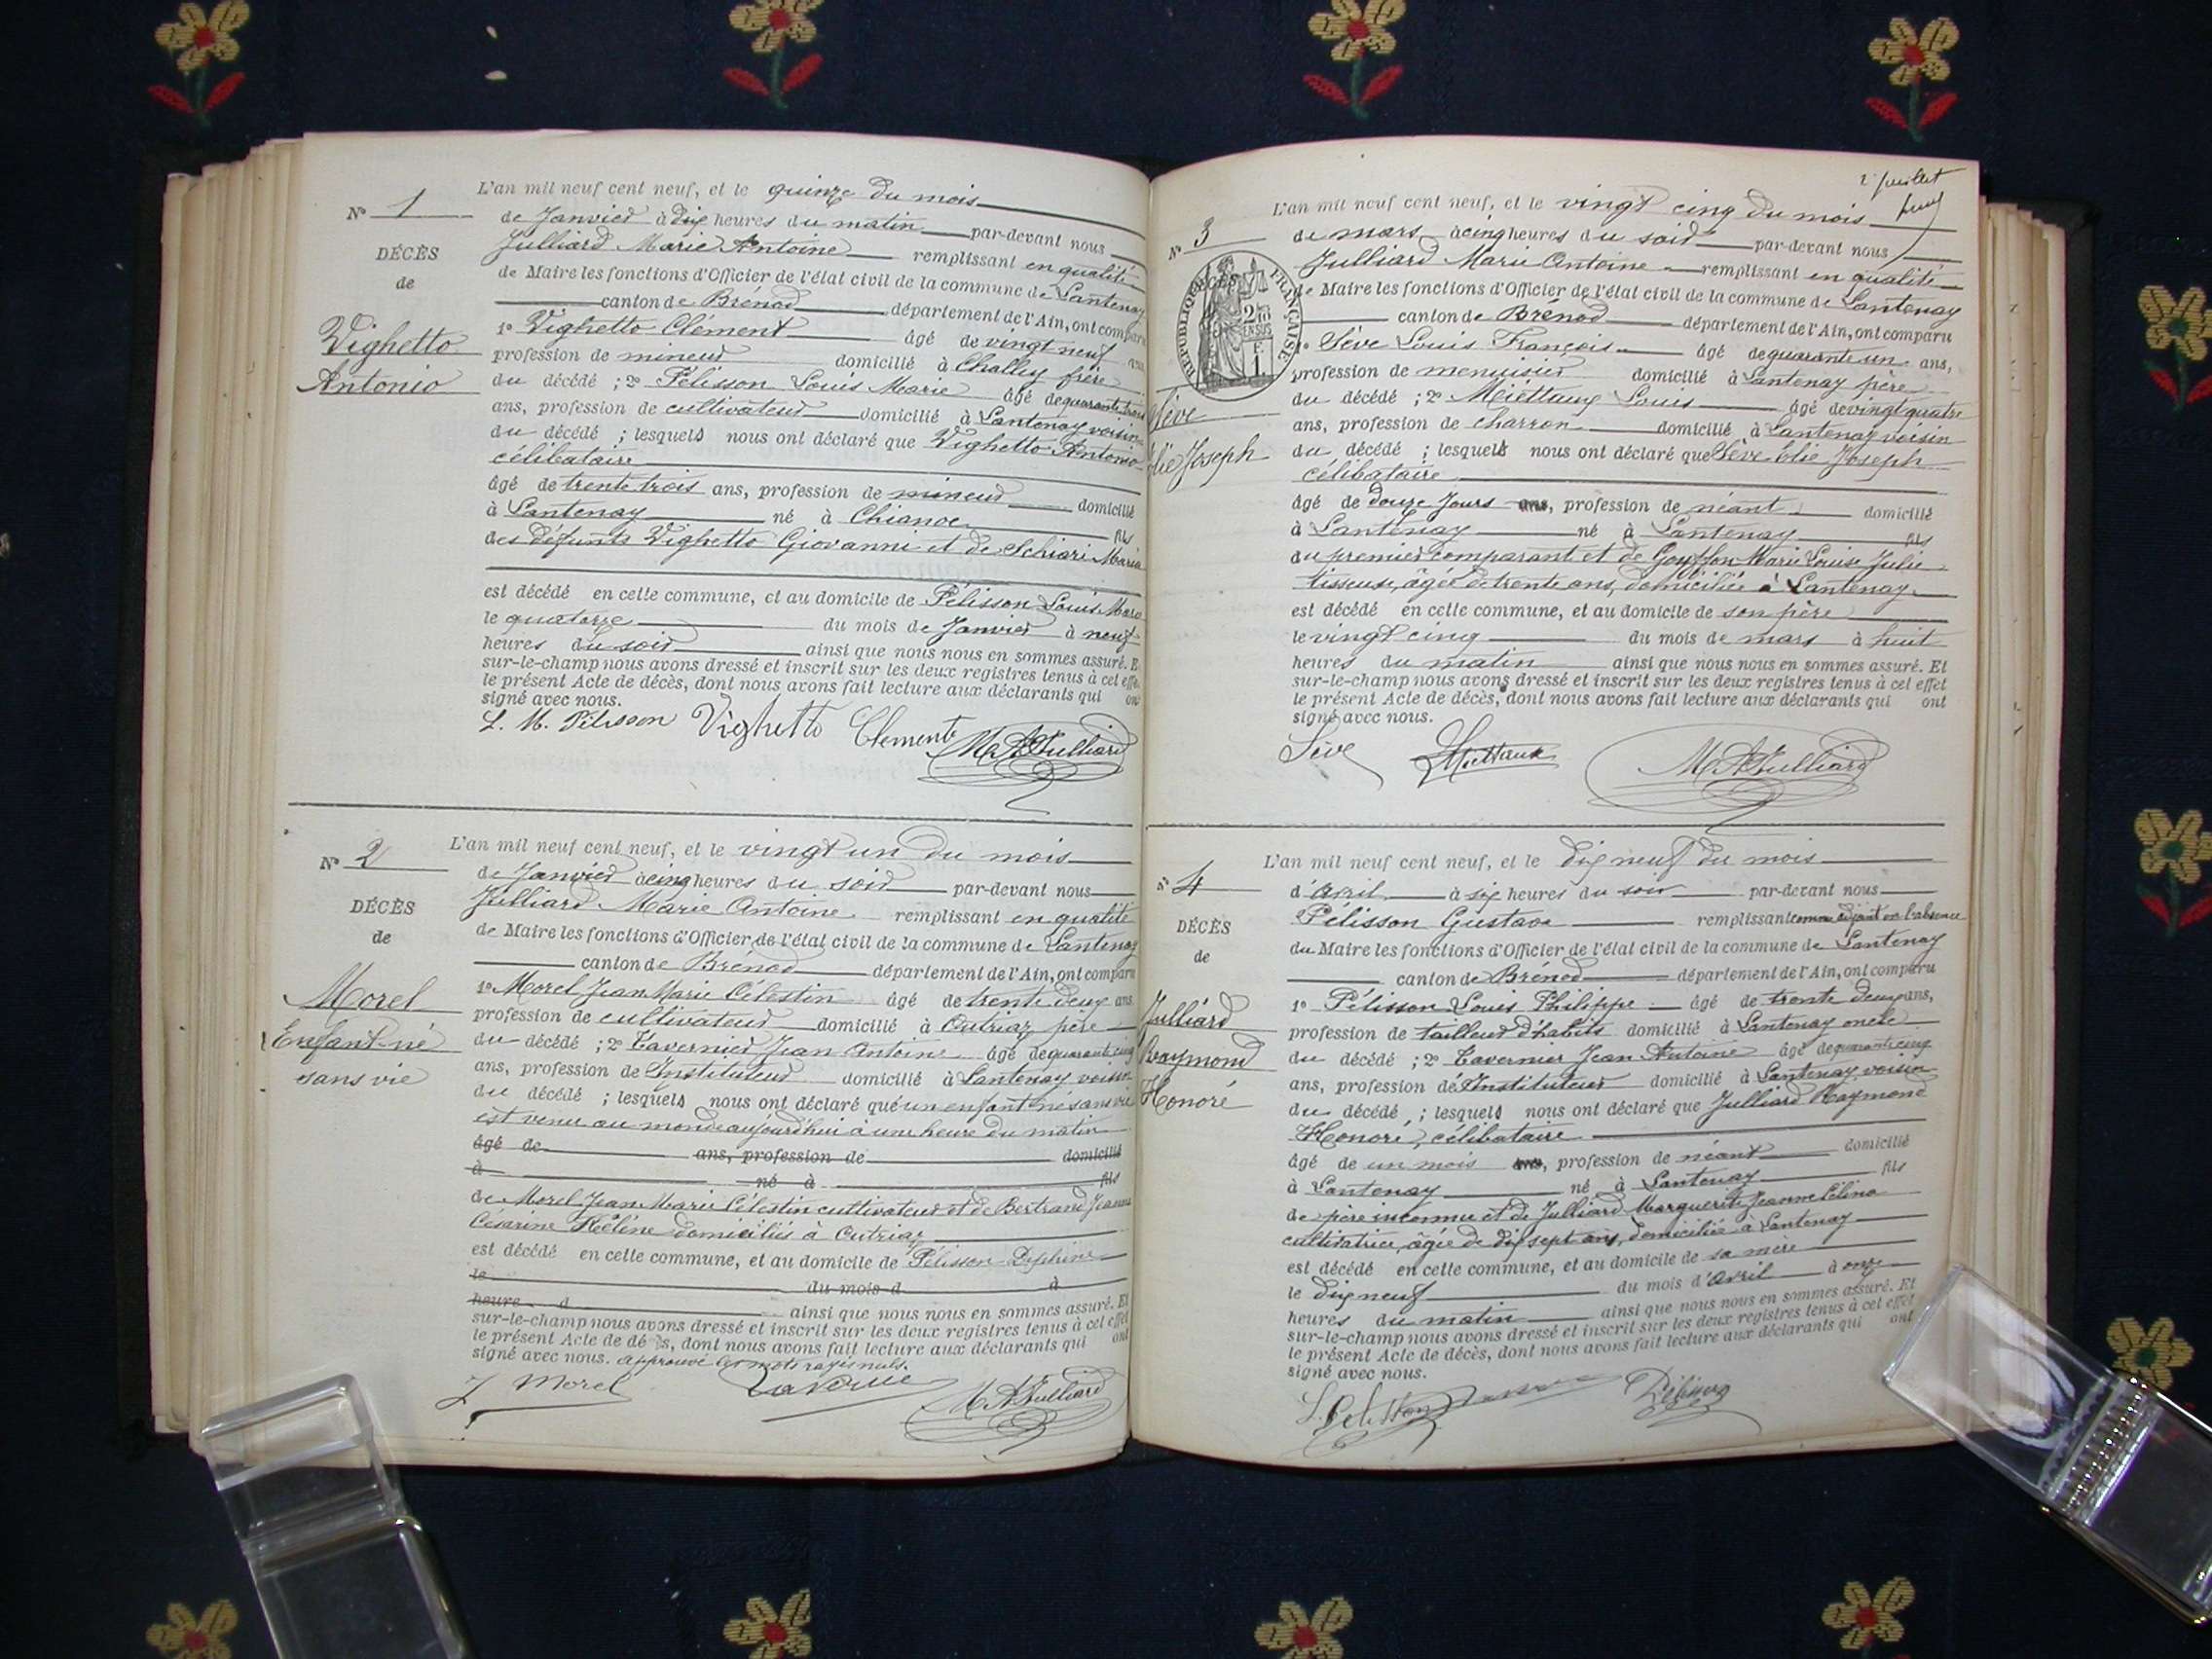 L'an mil neuf cent neuf, et le quinze du mois
N° 1
de Janvier à dix heures du matin par-devant nous
Julliard Marie Antoine remplissant en qualité
DÉCÈS
de Maire les fonctions d'Officier de l'état civil de la commune de Lantenay
de
canton de Brénod département de l'Ain, ont comparu
Vighetto
1° Vighetto Clément âgé de vingt neuf ans
profession de mineur domicilié à Challey frère
Antonio
du décédé ; 2° Pélisson Louis Marie âgé de quarante trois
ans, profession de cultivateur domicilié à Lantenay voisin
du décédé ; lesquels nous ont déclaré que Vighetto Antonio
célibataire
âgé de trente trois ans, profession de mineur domicilié
à Lantenay né à Chianoc fils
des défunts Vighetto Giovanni et de Schiari Maria
est décédé en cette commune, et au domicile de Pélisson Louis Marie
le quatorze du mois de Janvier à neuf
heures du soir ainsi que nous nous en sommes assuré. Et
sur-le-champ nous avons dressé et inscrit sur les deux registres tenus à cet effet
le présent Acte de décès, dont nous avons fait lecture aux déclarants qui ont
signé avec nous.
L. M. Pélisson Vighetto Clemente M A Julliard
L'an mil neuf cent neuf, et le vingt un du mois
N° 2
de Janvier à cinq heures du soir par-devant nous
Julliard Marie Antoine remplissant en qualité
DÉCÈS
de Maire les fonctions d'Officier de l'état civil de la commune de Lantenay
de
canton de Brénod département de l'Ain, ont comparu
Morel
1° Morel Jean Marie Célestin âgé de trente deux ans
profession de cultivateur domicilié à Outriaz père
Enfant né
du décédé ; 2° Tavernier Jean Antoine âgé de quarante cinq
sans vie
ans, profession de Instituteur domicilié à Lantenay voisin
du décédé ; lesquels nous ont déclaré qu'un enfant né sans vie
est venu au monde aujourd'hui à une heure du matin
âgé de ans, profession de domicilié
à né à fils
de Morel Jean Marie Célestin cultivateur et de Bertrand Jeanne
Césarine domiciliés à Outriaz
est décédé en cette commune, et au domicile de Pélisson Delphine
le du mois d à
heure d ainsi que nous nous en sommes assuré. Et
sur-le-champ nous avons dressé et inscrit sur les deux registres tenus à cet effet
le présent Acte de décès, dont nous avons fait lecture aux déclarants qui ont
signé avec nous. approuvé les mots rayés nuls.
J Morel Tavernier M A Julliard
2 juillet
L'an mil neuf cent neuf, et le vingt cinq du mois
N° 3
de mars à cinq heures du soir par-devant nous
Julliard Marie Antoine remplissant en qualité
DÉCÈS
RÉPUBLIQUE FRANÇAISE
de Maire les fonctions d'Officier de l'état civil de la commune de Lantenay
2/10 EN SUS
canton de Brénod département de l'Ain, ont comparu
1° Sève Louis François âgé de quarante un ans,
profession de menuisier domicilié à Lantenay père
du décédé ; 2° Louis âgé de vingt quatre
Sève
ans, profession de charron domicilié à Lantenay voisin
Elie Joseph
du décédé ; lesquels nous ont déclaré que Sève Elie Joseph
célibataire
âgé de douze Jours ans, profession de néant domicilié
à Lantenay né à Lantenay fils
du premier comparant et de Gouffon Marie Louise Julie
tisseuse, âgée de trente ans, domiciliée à Lantenay
est décédé en cette commune, et au domicile de son père
le vingt cinq du mois de mars à huit
heures du matin ainsi que nous nous en sommes assuré. Et
sur-le-champ nous avons dressé et inscrit sur les deux registres tenus à cet effet
le présent Acte de décès, dont nous avons fait lecture aux déclarants qui ont
signé avec nous.
Sève M A Julliard
L'an mil neuf cent neuf, et le dix neuf du mois
N° 4
d'Avril à six heures du soir par-devant nous
Pélisson Gustave remplissant comme adjoint en l'absence
DÉCÈS
du Maire les fonctions d'Officier de l'état civil de la commune de Lantenay
de
canton de Brénod département de l'Ain, ont comparu
Julliard
1° Pélisson Louis Philippe âgé de trente deux ans,
profession de tailleur d'habits domicilié à Lantenay oncle
Raymond
du décédé ; 2° Tavernier Jean Antoine âgé de quarante cinq
ans, profession d'Instituteur domicilié à Lantenay voisin
Honoré
du décédé ; lesquels nous ont déclaré que Julliard Raymond
Honoré, célibataire
âgé de un mois ans, profession de néant domicilié
à Lantenay né à Lantenay fils
de père inconnu et de Julliard Marguerite Jeanne Célina
cultivatrice, âgée de dix sept ans, domiciliée à Lantenay
est décédé en cette commune, et au domicile de sa mère
le dix neuf du mois d'Avril à onze
heures du matin ainsi que nous nous en sommes assuré. Et
sur-le-champ nous avons dressé et inscrit sur les deux registres tenus à cet effet
le présent Acte de décès, dont nous avons fait lecture aux déclarants qui ont
signé avec nous.
L. Pelisson Pélisson